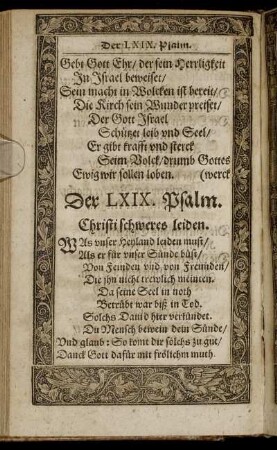 Der LXIX. Psalm.
Gebt Gott Ehr/ der sein Herrligkeit
In Israel beweiset/
Sein macht in Wolcken ist bereit/
Die Kirch sein Wunder preiset/
Der Gott Israel
Schützet leib vnd Seel/
Er gibt krafft vnd sterck
Seim Volck/ drumb Gottes
Ewig wir sollen loben. (werck
Der LXIX. Psalm.
Christi schweres leiden.
WAs vnser Heyland leiden must/
Als er für vnser Sünde büst/
Von Feinden vnd von Freunden/
Die jhn nicht trewlich meinten.
Da seine Seel in noth
Betrübt war biß in Tod.
Solchs Dauid hier verkündet.
Du Mensch bewein dein Sünde/
Vnd glaub: So komt dir solchs zu gut/
Danck Gott dafür mit frölichm muth.